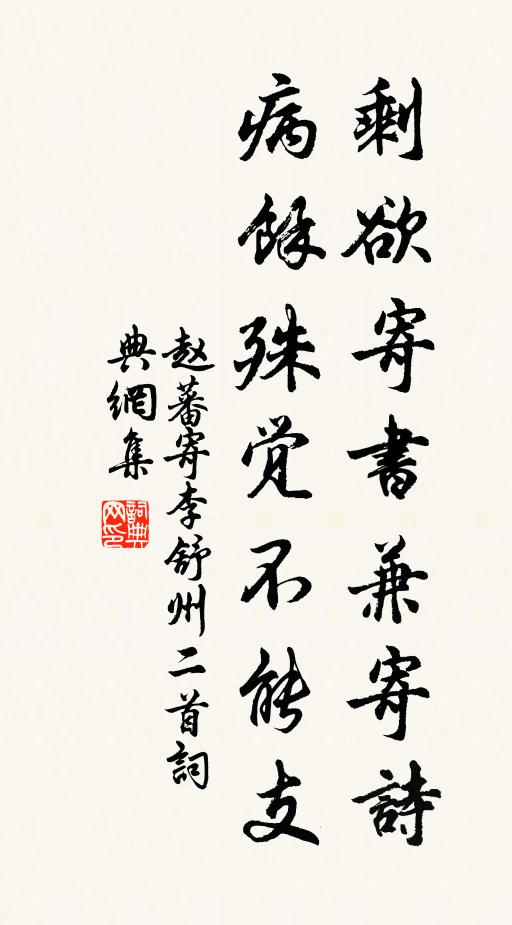 剩欲寄書兼寄詩
病餘殊觉不能支
赵蕃寄李舒州二首詞
典網集
詞典
网印